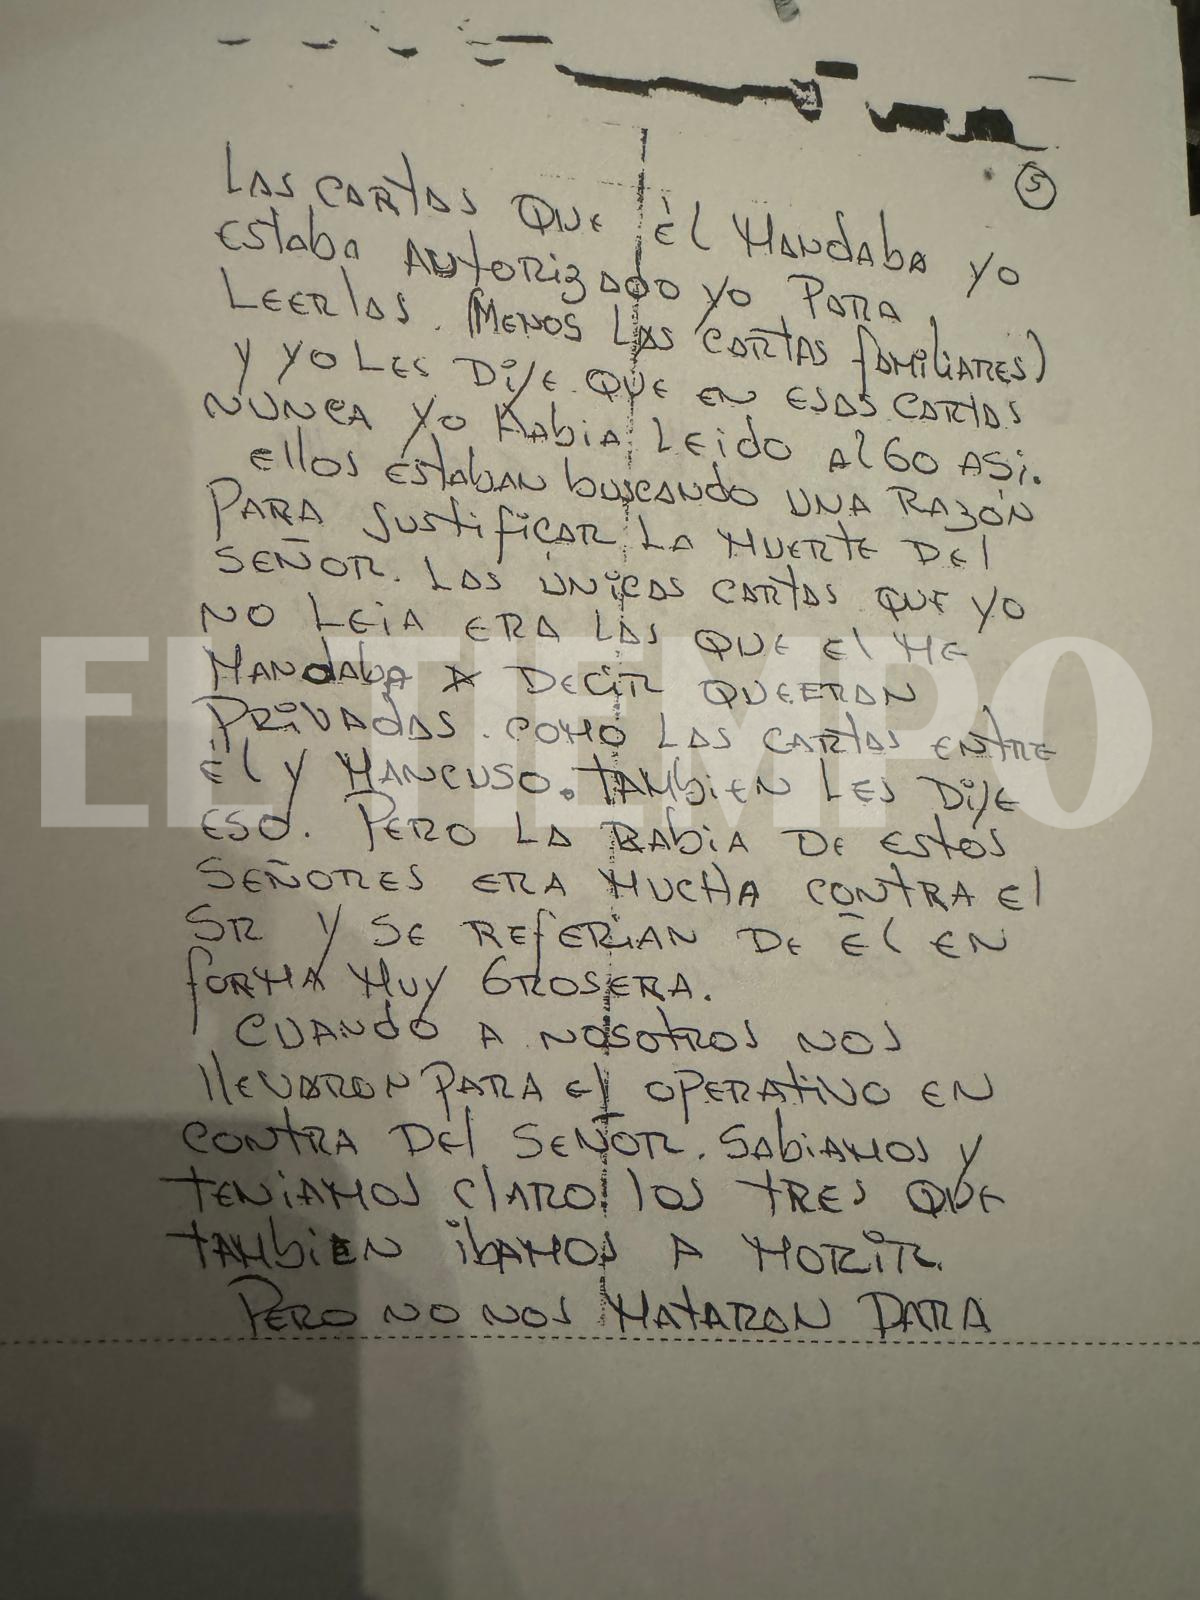 5
LAS CARTAS QUE ÉL MANDABA YO
ESTABA AUTORIZADO YO PARA
LEERLAS. (MENOS LAS CARTAS FAMILIARES)
Y YO LES DIJE QUE EN ESAS CARTAS
NUNCA YO HABIA LEIDO ALGO ASI.
ELLOS ESTABAN BUSCANDO UNA RAZÓN
PARA JUSTIFICAR LA MUERTE DEL
SEÑOR. LAS ÚNICAS CARTAS QUE YO
NO LEIA ERA LAS QUE EL ME
MANDABA A DECIR QUE ERAN
PRIVADAS. COMO LAS CARTAS ENTRE
ÉL Y MANCUSO. TAMBIEN LES DIJE
ESO. PERO LA RABIA DE ESTOS
SEÑORES ERA MUCHA CONTRA EL
SR Y SE REFERIAN DE ÉL EN
FORMA MUY GROSERA.
CUANDO A NOSOTROS NOS
LLEVARON PARA EL OPERATIVO EN
CONTRA DEL SEÑOR. SABIAMOS Y
TENIAMOS CLARO LOS TRES QUE
TAMBIEN IBAMOS A MORIR.
PERO NO NOS MATARON PARA
EL TIEMPO